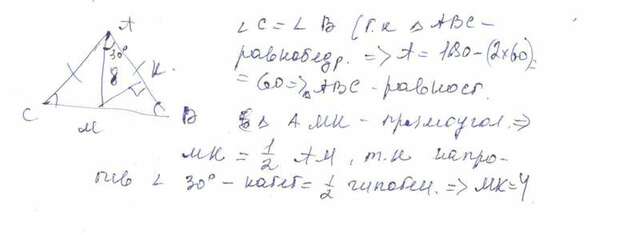 A
30°
8
K
C
C
M
B
∠ C = ∠ B (т.к △ ABC –
равнобедр. => A = 180 – (2×60)
= 60 => △ ABC – равност.
△ AMK – прямоугол. =>
MK = 1/2 AM, т.к напро-
тив ∠ 30° – катет = 1/2 гипотен. => MK = 4